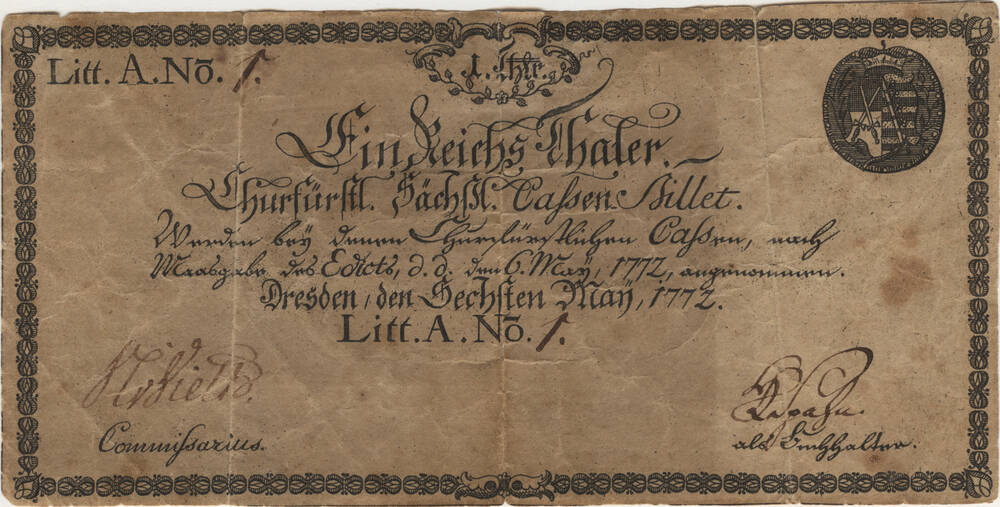 Litt. A. Nō. 1.
1. Thlr.
Ein Reichs Thaler.
Churfürstl. Sächßl. Caßen-Billet.
Werden bey denen Churfürstlichen Caßen, nach
Maasgabe des Edicts, d. d. den 6. May, 1772, angenommen.
Dresden, den Sechsten May, 1772.
Litt. A. Nō. 1.
Commißarius.
als Buchhalter.